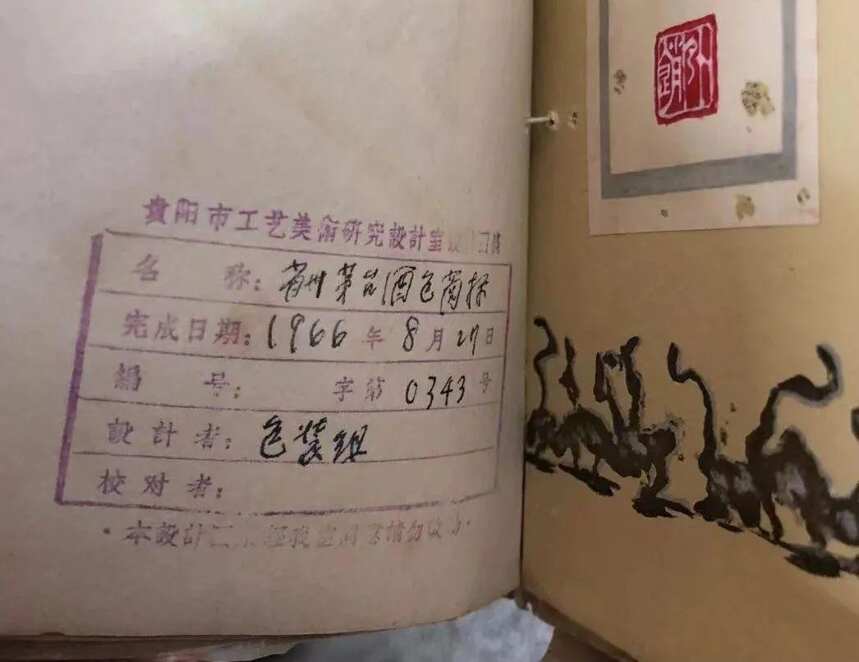 貴阳市工艺美術研究設計室設計
名 称：茅台酒包商标
完成日期：1966年8月27日
編 号： 字第0343号
設計者：包装组
校对者：
·本設計 請勿